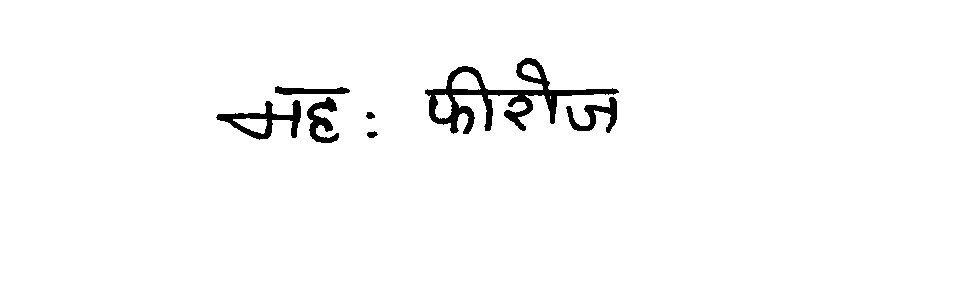 मह: फीरोज